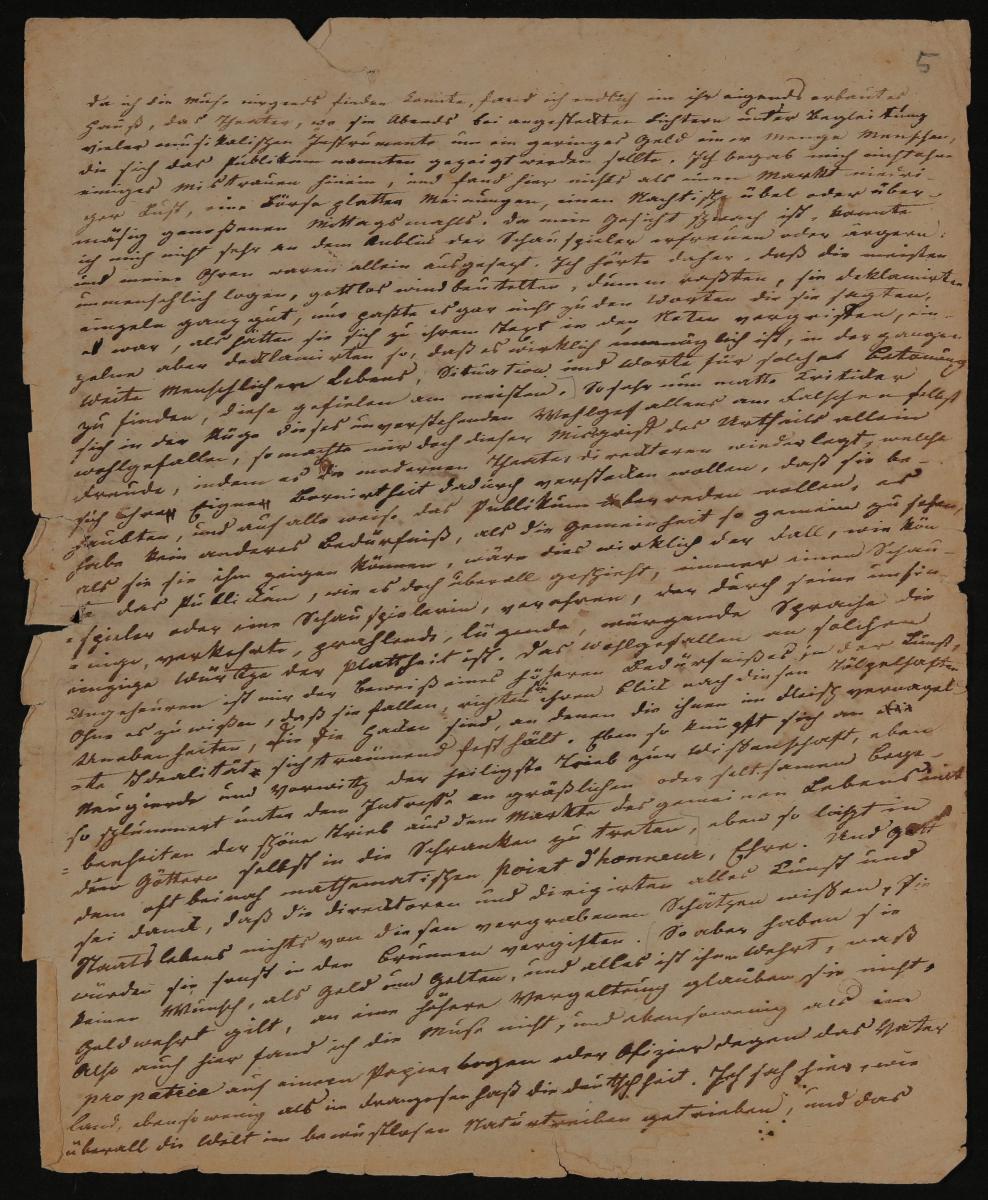 5
da ich die Muse nirgends finden konnte, fand ich endlich im ihr eigends erbautes
Hauß, das Theater, wo sie Abends bei angesteckten Lichtern unter Begleitung
vieler musikalischen Instrumente um ein geringes Geld einer Menge Menschen,
die sich das Publikum nannten gezeigt werden sollte. Ich begab mich nicht ohne
einiges Mistrauen hinein, und fand hier nichts als einen Markt niedri-
ger Lust, eine Börse platter Meinungen, einen Nachtisch übel oder über-
mäsig genoßenen Mittagsmahls. da mein Gesicht schwach ist, konnte
ich mich nicht sehr an dem Anblick der Schauspieler erfreuen oder ärgern:
und meine Ohren waren allein ausgesezt. Ich hörte daher, daß die meisten
unmenschlich logen, gottlos windbeutelten, dumm spaßten, sie deklamirten
einzeln ganz gut, nur paßte es gar nicht zu den Worten die sie sagten,
es war, als hätten sie sich zu ihrem Text in den Noten vergriffen, ein-
zelne aber deklamirten so, daß es wirklich unmöglich ist, in der ganzen
Weite menschlichen Lebens, Situation und Worte für solche Betonung
zu finden, diese gefielen am meisten. So sehr nun matte Kritiker
sich in der Rüge dieses unverstehenden Wohlgefallens am Falschen selbst
wohlgefallen, so machte mir doch dieser Misgriff des Urtheils allein
Freude, indem es die modernen Theater direktoren wiederlegt, welche
sich ihre Eigne Bornirtheit dadurch verstecken wollen, daß sie be-
haupten, und auf alle weise das Publikum überreden wollen, es
habe kein anderes Bedürfniß, als die Gemeinheit so gemein zu sehen,
als sie sie ihm zeigen können, wäre dies wirklich der Fall, wie kön-
te das Publikum, wie es doch überall geschieht, immer einen Schau-
spieler oder eine Schauspielerin, verehren, der durch seine unsin-
nige, verkehrte, prahlende, lügende, würgende Sprache die
einzige Würze der Plattheit ist. Das Wohlgefallen an solchen
Ungeheuren ist mir der Beweiß eines höheren Bedürfnißes in der Kunst,
Ohne es zu wißen, daß sie fallen, richten sie ihren Blick nach diesen Tölpelhaften
Unebenheiten, die die Haken sind, an denen die ihnen im Fleisch vernagel-
te Idealität sich träumend fest hält. Eben so knüpft sich an
Neugierde und Vorwitz der heiligste Trieb zur Wißenschaft, eben
so schlummert unter dem Intresse an gräßlichen oder seltsamen Bege-
benheiten der schöne Trieb aus dem Markte des gemeinen Lebens mit
den Göttern selbst in die Schranken zu treten, eben so liegt in
dem oft beinah mathematischen point d'honneur, Ehre. Und Gott
sei dank, daß die direktoren und dirigirten alles Kunst und
Staatslebens nichts von diesen vergrabenen Schätzen wißen, sie
würden sie sonst in den Brunnen vergiften. So aber haben sie
keinen Wunsch, als Geld und Gelten, und alles ist ihnen wehrt, waß
Geldwehrt gilt, an eine höhere Vergeltung glauben sie nicht.
Also auch hier fand ich die Muse nicht, und ebensowenig als im
pro patria auf einem Papierbogen oder Ofizierdegen das Vater
land, ebensowenig als im Franzosenhaß die deutschheit. Ich sah hier, wie
überall die Welt im bewustlosen Naturtreiben getrieben, und das